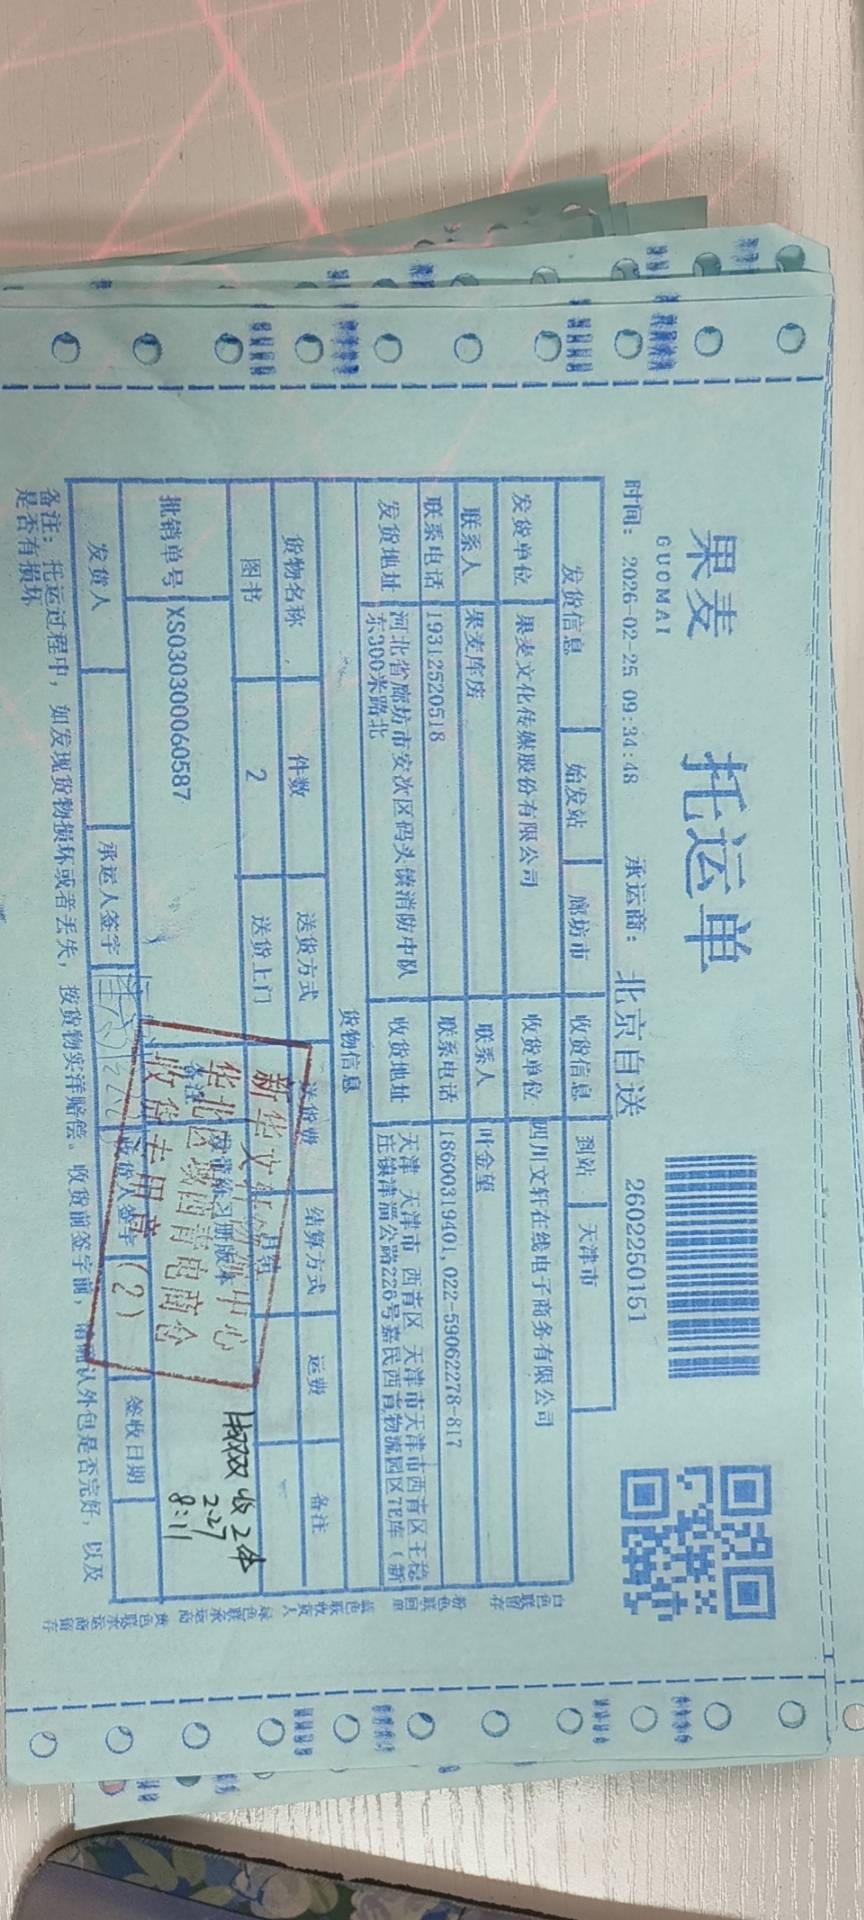 果麦 托运单
GUOMAI
2602250151
时间: 2026-02-25 09:34:48 承运商: 北京自送
发货信息 始发站 廊坊市 收货信息 到站 天津市
发货单位 果麦文化传媒股份有限公司 收货单位 四川文轩在线电子商务有限公司
联系人 果麦库房 联系人 叶金望
联系电话 19312520518 联系电话 18600319401, 022-59062278-817
发货地址 河北省廊坊市安次区码头镇消防中队东300米路北 收货地址 天津 天津市 西青区 天津市天津市西青区王稳庄镇津淄公路226号嘉民西青物流园区7E库(新
货物信息
货物名称 件数 送货方式 送货费 结算方式 运费 备注
图书 2 送货上门 月结
批销单号 XS030300060587 备注
新华文轩 中心
华北区域西青电商仓
收货专用章
(2)
收2件
2.27
8:11
发货人 承运人签字 收货人签字 签收日期
备注: 托运过程中, 如发现货物损坏或者丢失, 按货物实洋赔偿。收货前签字前, 请确认外包是否完好, 以及
是否有损坏
白色联留存 粉色联回单 蓝色联收货人 绿色联承运商 黄色联承运商留存